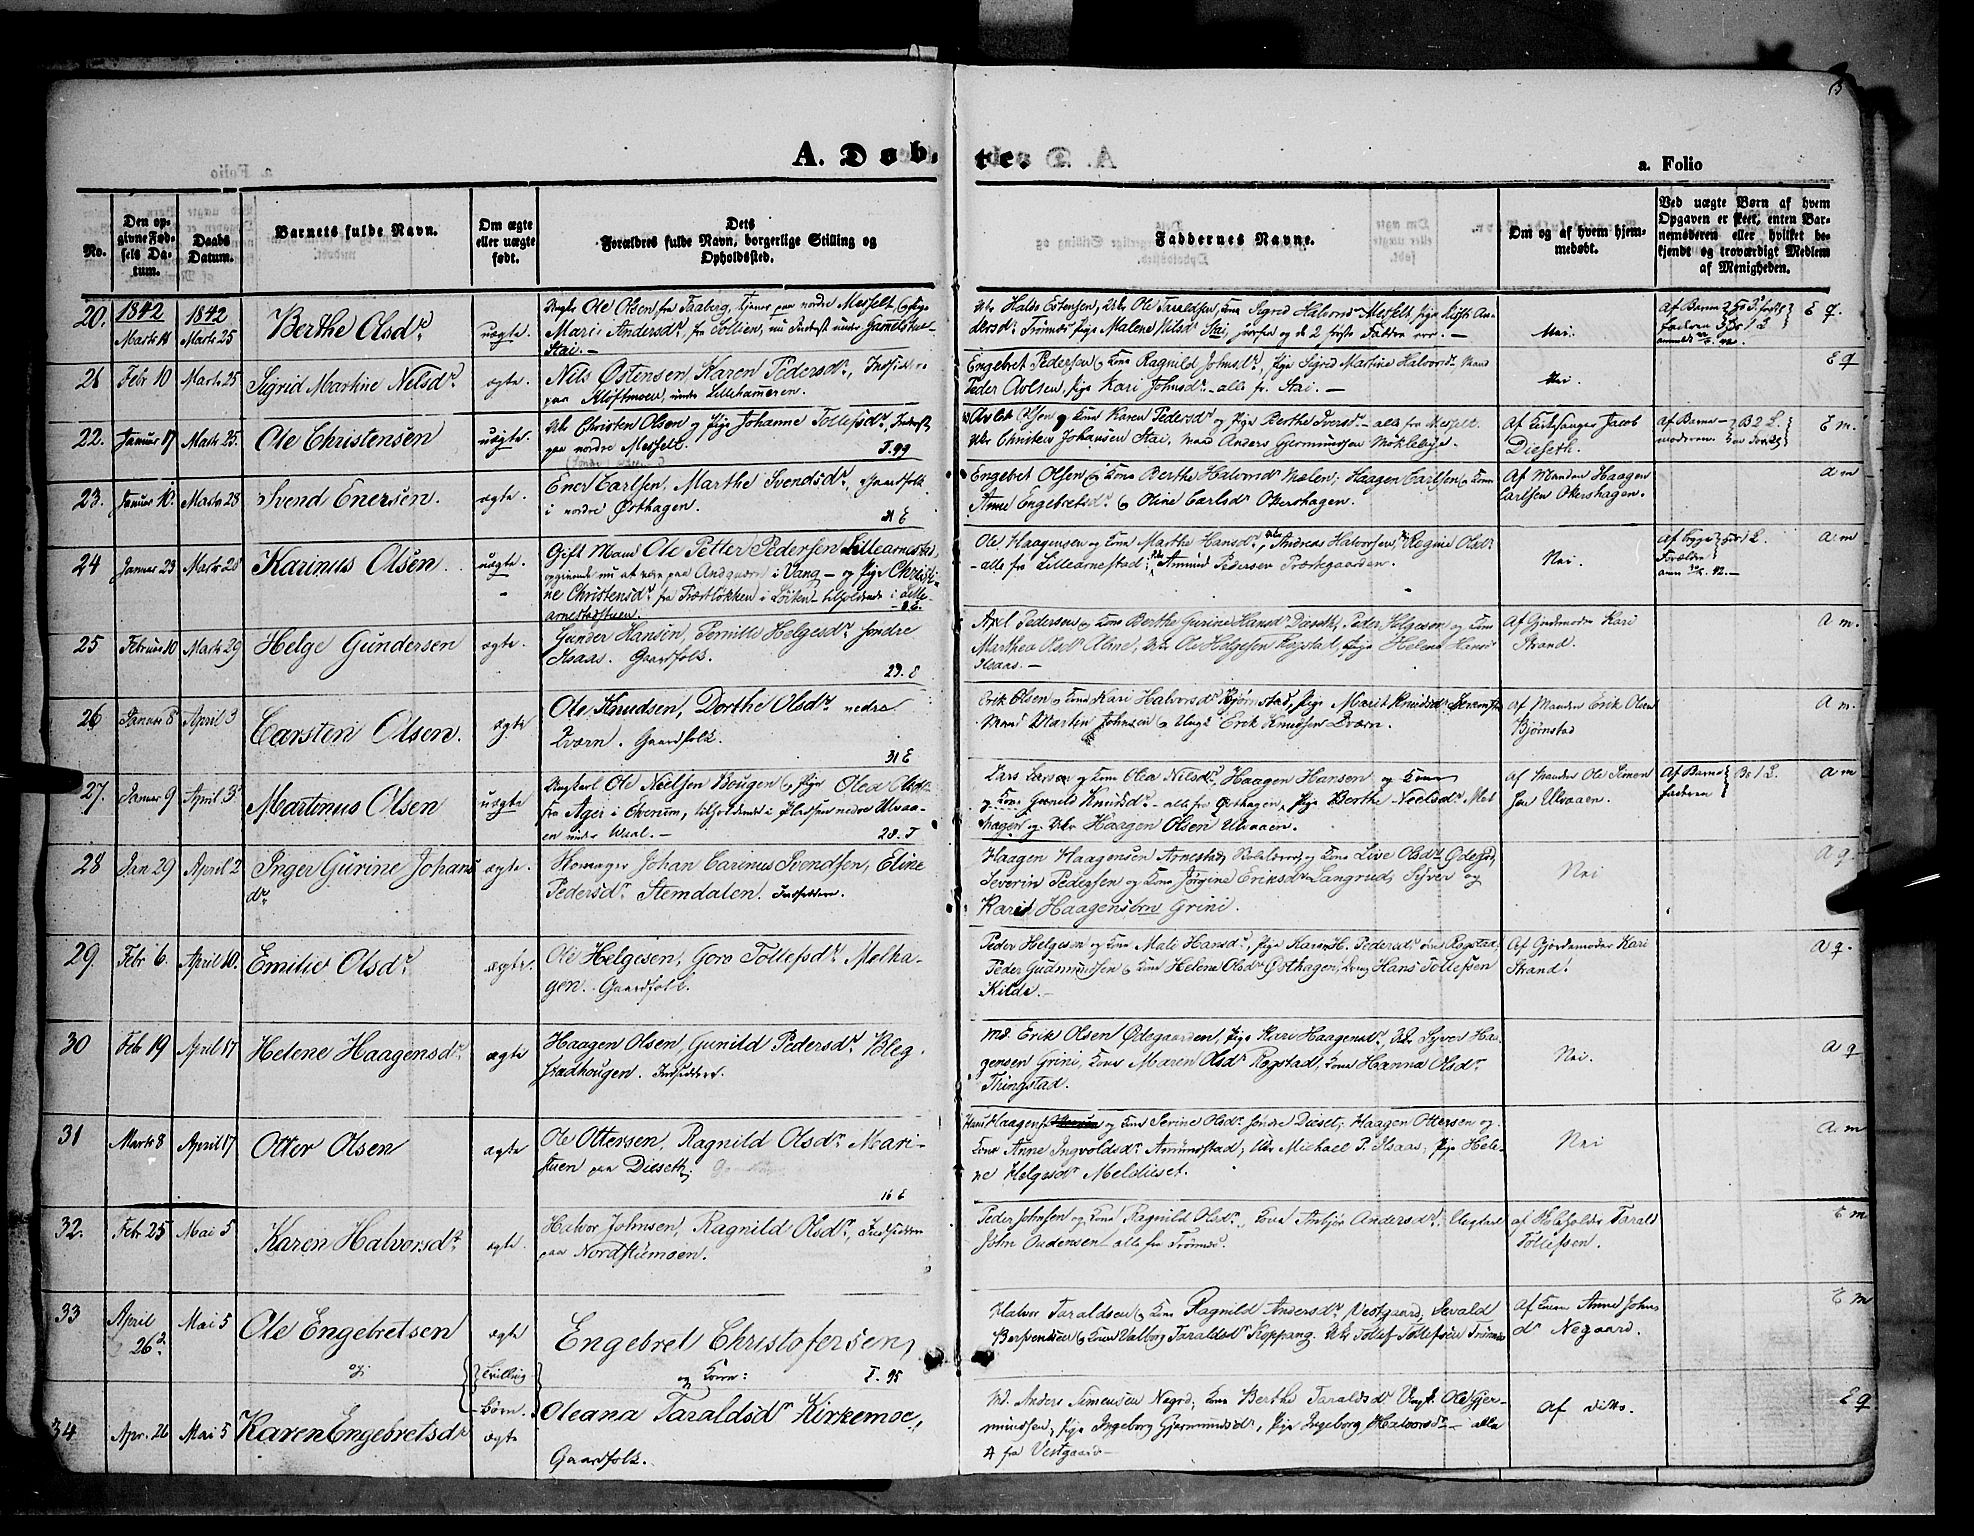 A. Døb-
te.
a. Folio
No.
Den op-
givne Fød-
sels Da-
tum.
Daabs
Datum.
Barnets fulde Navn.
Om ægte
eller uægte
født.
Dets
Forældres fulde Navn, borgerlige Stilling og
Opholdssted.
Faddernes Navne.
Om og af hvem hjem-
medøbt.
Ved uægte Børn af hvem
Opgaven er skeet, enten Bar-
nemoderen eller hvilket be-
kjendt og troværdigt Medlem
af Menigheden.
20. 1842 Marts 11 1842 Marts 25 Berthe Olsdr uægte.
Ungk. Ole Olsen fra Faaberg, tjener paa nordre Messelt og Pige
Marie Andersdr fra Sollien,
Stai. —
Nei.
E q.
21 Febr 10 Marts 25 Sigrid Martine Nilsdr ægte.
Nils Østensen, Karen Pedersdr, Indsidder
paa Kloftmoen, under Lillehammeren.
Engebret Pedersen og Kone Ragnild Johnsdr, Pige Sigrid Martine Halvorsdr Mand
Peder Avlsen, Pige Kari Johnsdr - alle fra Stai. —
Nei.
E q
22. Januar 17 Marts 25. Ole Christensen uægte.
Uk Christen Olsen og Pige Johanne Tollefsdr,
paa nordre Messelt.
F. 99
Olsen og Kone Karen Pedersdr og Pige Berthe Iversdr - alle fra Messelt.
Ukr Christen Johansen Stai, Mand Anders Gjermundsen Møklebye.
Af Kirkesanger Jacob
Dieseth.
Af Barne-
moderen.
E m.
23. Januar 10. Marts 28 Svend Enersen. ægte.
Ener Carlsen, Marthe Svendsdr, Gaardfolk
i nordre Østhagen.
31 E
Engebret Olsen og Kone Berthe Halvorsdr Malen; Haagen Carlsen og Kone
Anne Engebretsdr og Oline Carlsdr Okershagen.
Af Manden Haagen
Carlsen Okershagen.
a m
24 Januar 23 Marts 28 Karinus Olsen. uægte.
Gift Mand Ole Petter Pedersen Lillearnestad,
opgivende nu at være paa Andquærn i Vang - og Pige Christi-
ne Christensdr fra Træetløkken i Løiten - tilholdende i Lille-
arnestadstuen.
Ole Haagensen og Kone Marthe Hansdr, Andreas Halvorsen, Regine Olsdr
- alle fra Lillearnestad; Amund Pedersen Træskegaarden.
Nei.
Af begge
Forældre
a m
25 Februar 10 Marts 29 Helge Gundersen ægte.
Gunder Hansen, Pernille Helgesdr søndre
Haas. Gaardfolk.
29. E
Axel Pedersen og Kone Berthe Gurine Hansdr Dæseth, Peder Helgesen og Kone
Marthea Olsdr Alme, Ukr Ole Helgesen Rogstad, Pige Helene Hansdr
Haas. —
Af Gjordemoder Kari
Strand.
a m.
26 Januar 8 April 3 Carsten Olsen. ægte.
Ole Knudsen, Dorthe Olsdr nedre
Qværn. Gaardfolk.
31 E
Erik Olsen og Kone Kari Halvorsdr Bjørnstad, Pige Marit Knudsdr
Mand Martin Johnsen og Ungk Erik Knudsen Qværn.
Af Manden Erik Olsen
Bjørnstad
a m.
27. Januar 9 April 3 Martinus Olsen uægte
Ungkarl Ole Neelsen Bougen og Pige Olea Olsdr
fra Ager i Elverum, tilholdende i Pladsen nedre Ulvaa-
en under Ulval. —
28. F
Lars Larsen og Kone Olea Nilsdr, Haagen Hansen og Kone
og Kone Gunild Knudsdr - alle fra Østhagen, Pige Berthe Neelsdr Mel
hagen og Ukr Haagen Olsen Ulvaaen.
Af Manden Ole Simen
sen Ulvaaen.
Af Barne
faderen
a m
28 Jan 29 April 2 Inger Gurine Johans
dr
ægte.
Skomager Johan Carinus Svendsen, Eline
Pedersdr Stemdalen. Indsiddere.
Haagen Haagensen Arnestad, og Kone Live Olsdr Ødegrd,
Severin Pedersen og Kone Jørgine Eriksdr Langrud, Syver og
Kari Haagensbrn Grini.
Nei
a q.
29. Febr 6. April 10. Emilie Olsdr ægte.
Ole Helgesen, Goro Tollefsdr Melha-
gen. Gaardfolk.
Peder Helgesen og Kone Mali Hansdr, Pige Karen H. Pedersdr øvre Rogstad,
Peder Gudmundsen og Kone Helene Olsdr Østhagen, Hans Tollefsen
Kilde. —
Af Gjordemoder Kari
Strand.
a q.
30 Febr 19 April 17 Helene Haagensdr. ægte
Haagen Olsen, Gunild Pedersdr Bleg-
stadhougen. Indsidder.
Md. Erik Olsen Ødegaarden, Pige Kari Haagensdr, Syver Haa-
gensen Grini, Kone Maren Olsdr Rogstad, Kone Hanna Olsdr
Thingstad.
Nei.
a q
31 Marts 8 April 17 Otter Olsen ægte
Ole Ottersen, Ragnild Olsdr Mari-
stuen paa Dieseth;
16 E
Hans Haagens. og Kone Serine Olsdr søndre Dieset; Haagen Ottersen og
Kone Anne Ingvoldsdr Amundstad; Ukr Michael P. Haas; Pige Hele-
ne Helgesdr Meldieset.
Nei
a. m
32. Febr 25 Mai 5 Karen Halvorsdr. ægte.
Halvor Johnsen, Ragnild Olsdr, Indsidder
paa Nordstumoen.
Peder Johnsen og Kone Ragnild Olsdr, Kone Anbjør Andersdr,
John Endersen alle fra Trønnes.
af Tarald
Tollefsen.
E m
33 April 26 Mai 5 Ole Engebretsen ægte
og
Tvilling
børn.
Engebret Christofersen,
og Kone:
F. 95
Halvor Taraldsen og Kone Ragnild Andersdr Vestgaard, Sevald
Berpendsen og Kone Valborg Taraldsdr Koppang, Ukr Tollef Tollefsen Trønnes
Af Kone Anne Johns
dr Negaard.
E m
34 Apr. 26 Mai 5 Karen Engebretsdr ægte
Oleana Taraldsdr Kirkemoe,
Gaardfolk.
Md. Anders Simensen Negrd, Kone Berthe Taraldsdr Ungk. Ole Gjer-
mundsen, Pige Ingeborg Gjermundsdr, Pige Ingeborg Halvorsdr - alle
4 fra Vestgaard —
Af ditto.
E q